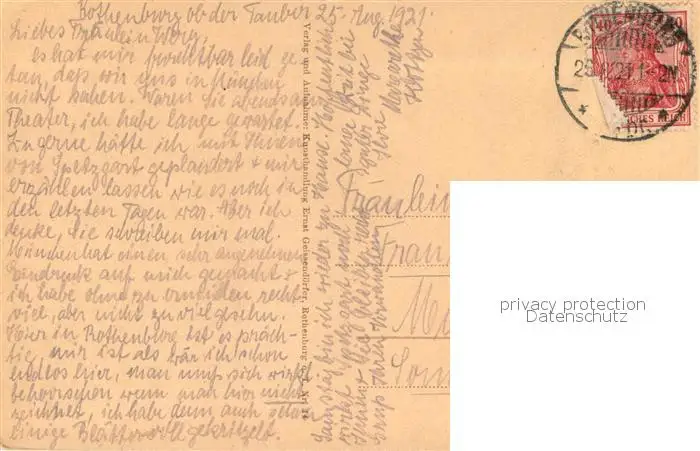 Rothenburg ob der Tauber 25. Aug. 1921.
Liebes Fräulein
es hat mir furchtbar leid ge-
tan, daß wir uns in München
nicht sahen. Waren Sie abends am
Theater, ich habe lange gewartet.
Zu gerne hätte ich mit Ihnen
von Spetzgart geplaudert + mir
erzählen lassen wie es noch in
den letzten Tagen war. Aber ich
denke, Sie schreiben mir mal.
München hat einen sehr angenehmen
Eindruck auf mich gemacht +
ich habe ohne zu ermüden recht
viel, aber nicht zu viel gesehn.
Hier in Rothenburg ist es präch-
tig, mir ist als wär ich schon
endlos hier, man muß sich wirkl.
beherrschen wenn man hier nicht
zeichnet, ich habe denn auch schon
einige Blätter voll gekritzelt.
Samstag bin ich wieder zu Hause. Hoffentlich
wirkt Spetzgart noch lange Zeit bei
Ihnen + bleiben guter Dinge
Grüß Ihren Verwandten Ihre
Verlag und Aufnahme: Kunsthandlung Ernst Geissendörfer, Rothenburg o. T. Nr.
Fräulein
40
DEUTSCHES REICH
privacy protection
Datenschutz